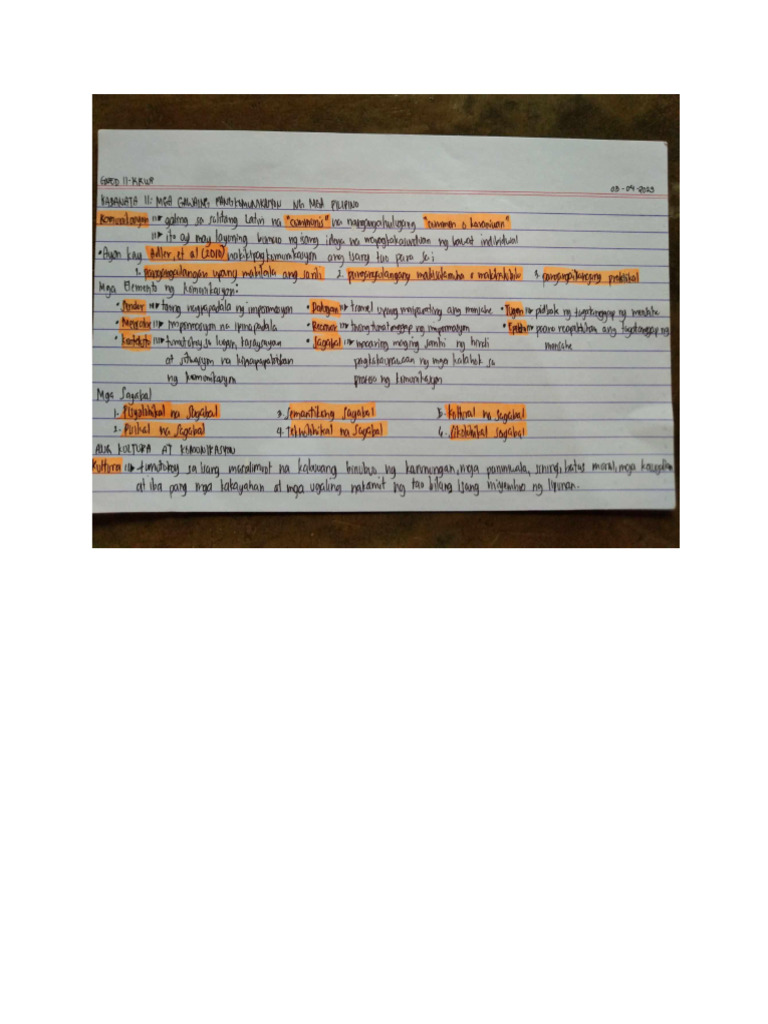 GNED 11-KKUP
03-04-2023
KABANATA II: MGA GAWAING PANGKOMUNIKASYON NG MGA PILIPINO
Komunikasyon galing sa salitang Latin na "communis" na nangangahulugang "common o karaniwan"
ito ay may layuning bumuo ng isang ideya na mapagkakasunduan ng bawat indibidwal
• Ayon kay Adler, et al (2010) nakikipagkomunikasyon ang isang tao para sa;
1. pangangailangan upang makilala ang sarili 2. pangangailangang makisalamuha o makihalubilo 3. pangangailangang praktikal
Mga Elemento ng Komunikasyon:
• Sender taong nagpapadala ng impormasyon • Daluyan tsanel upang maiparating ang mensahe • Tugon pidbak ng tagatanggap ng mensahe
• Mensahe impormasyon na ipinapadala • Receiver taong tumatanggap ng impormasyon • Epekto paano naapektuhan ang tagatanggap ng
• Konteksto tumutukoy sa lugar, kasaysayan • Sagabal maaaring maging sanhi ng hindi mensahe
at sitwasyon na kinapapalooban pagkakaunawaan ng mga kalahok sa
ng komunikasyon proseso ng komunikasyon
Mga Sagabal
1. Pisyolohikal na Sagabal 3. Semantikong Sagabal 5. Kultural na Sagabal
2. Pisikal na Sagabal 4. Teknolohikal na Sagabal 6. Sikolohikal Sagabal
ANG KULTURA AT KOMUNIKASYON
Kultura tumutukoy sa isang masalimuot na kabuuang binubuo ng karunungan, mga paniniwala, sining, batas moral, mga kaugalian
at iba pang mga kakayahan at mga ugaling nakamit ng tao bilang isang miyembro ng lipunan.